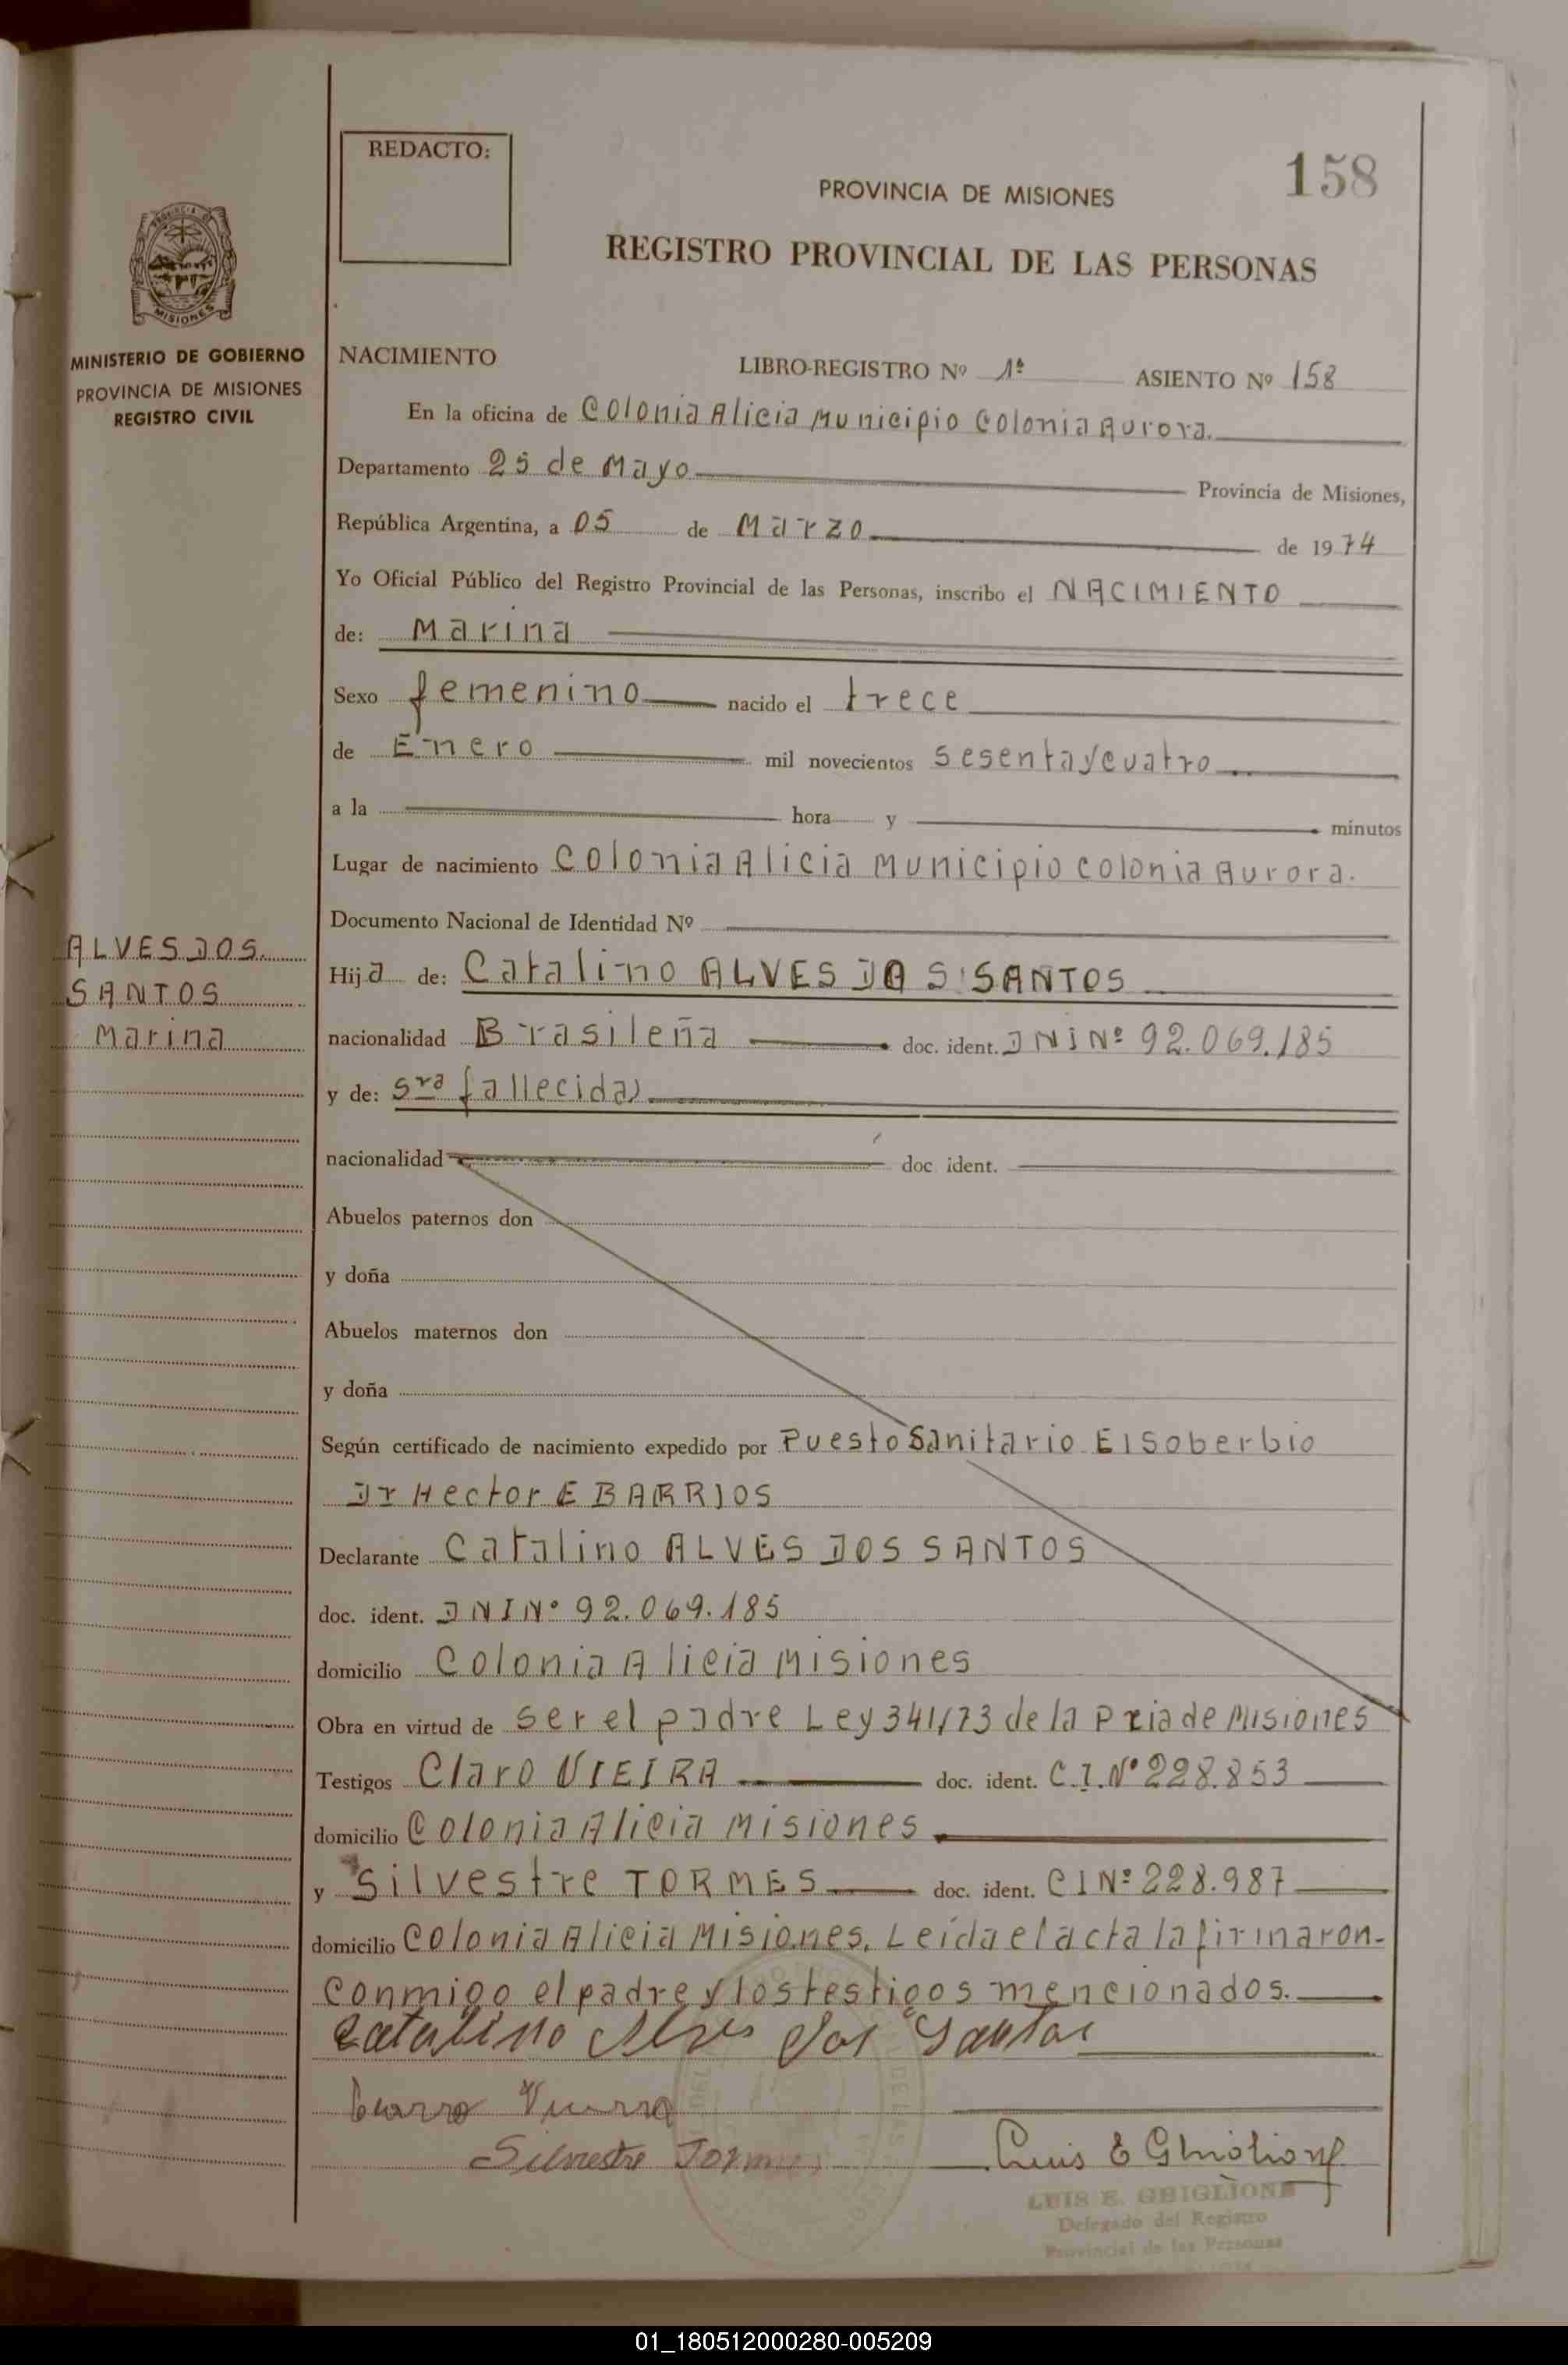 REDACTO:
158
PROVINCIA DE MISIONES
REGISTRO PROVINCIAL DE LAS PERSONAS
PROVINCIA DE
MISIONES
MINISTERIO DE GOBIERNO
PROVINCIA DE MISIONES
REGISTRO CIVIL
NACIMIENTO LIBRO-REGISTRO Nº 1º ASIENTO Nº 158
En la oficina de Colonia Alicia Municipio Colonia Aurora.
Departamento 25 de Mayo Provincia de Misiones,
República Argentina, a 05 de Marzo de 1974
Yo Oficial Público del Registro Provincial de las Personas, inscribo el NACIMIENTO
de: Marina
Sexo femenino nacido el trece
de Enero mil novecientos sesenta y cuatro
a la hora y minutos
Lugar de nacimiento Colonia Alicia Municipio Colonia Aurora.
Documento Nacional de Identidad Nº
ALVES DOS
SANTOS
Marina
Hija de: Catalino ALVES DOS SANTOS
nacionalidad Brasileña doc. ident. DNI Nº 92.069.185
y de: Sra fallecida)
nacionalidad doc ident.
Abuelos paternos don
y doña
Abuelos maternos don
y doña
Según certificado de nacimiento expedido por Puesto Sanitario El Soberbio
Dr Hector E BARRIOS
Declarante Catalino ALVES DOS SANTOS
doc. ident. DNI Nº 92.069.185
domicilio Colonia Alicia Misiones
Obra en virtud de ser el padre Ley 341/73 de la Pcia de Misiones
Testigos Claro VIEIRA doc. ident. C.I. Nº 228.853
domicilio Colonia Alicia Misiones
y Silvestre TORMES doc. ident. CI Nº 228.987
domicilio Colonia Alicia Misiones. Leída el acta la firmaron
conmigo el padre y los testigos mencionados.
Catalino Alves dos Santos
Silvestre
Luis E Ghiglione
LUIS E. GHIGLIONE
Delegado del Registro
Provincial de las Personas
01_180512000280-005209